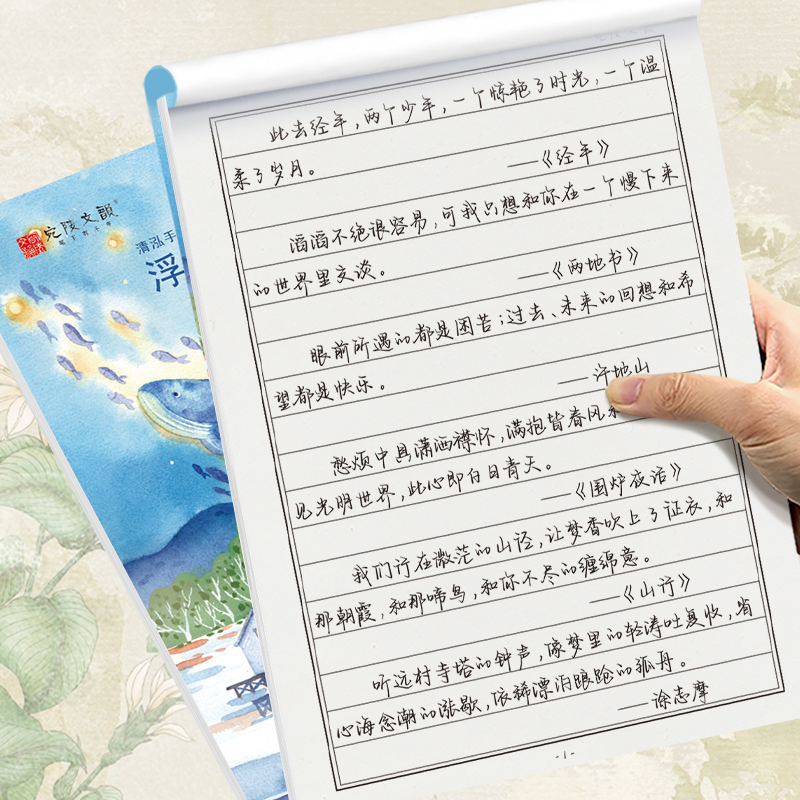 此去经年，两个少年，一个惊艳了时光，一个温
柔了岁月。
——《经年》
滔滔不绝很容易，可我只想和你在一个慢下来
的世界里交谈。
——《两地书》
眼前所遇的都是困苦；过去、未来的回想和希
望都是快乐。
——许地山
愁烦中具潇洒襟怀，满抱皆春风和
见光明世界，此心即白日青天。
——《围炉夜话》
我们行在微茫的山径，让梦香吹上了征衣，和
那朝霞，和那啼鸟，和你不尽的缠绵意。
——《山行》
听远村寺塔的钟声，像梦里的轻涛吐复收，省
心海念潮的涨歇，依稀漂泊踉跄的孤舟。
——徐志摩
-1-
宛陵文韵
清泓手
浮